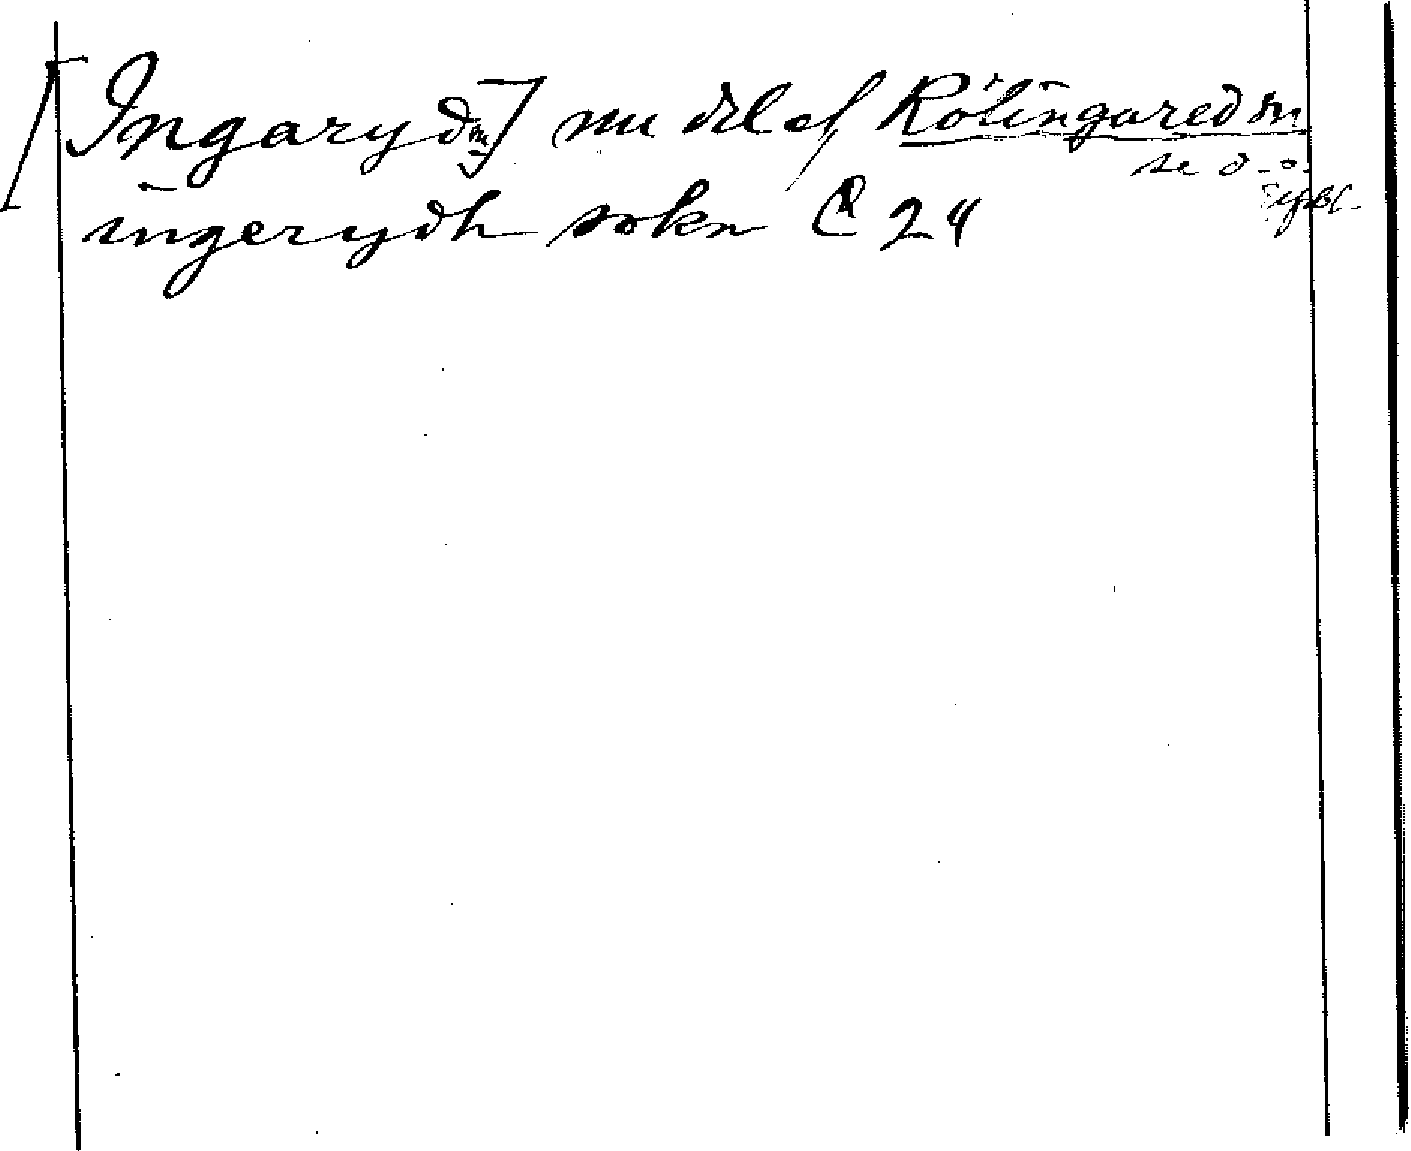 [Ingaryd sn] nu del af Kölingared sn
se d. o.
ingerydh sokn C 24